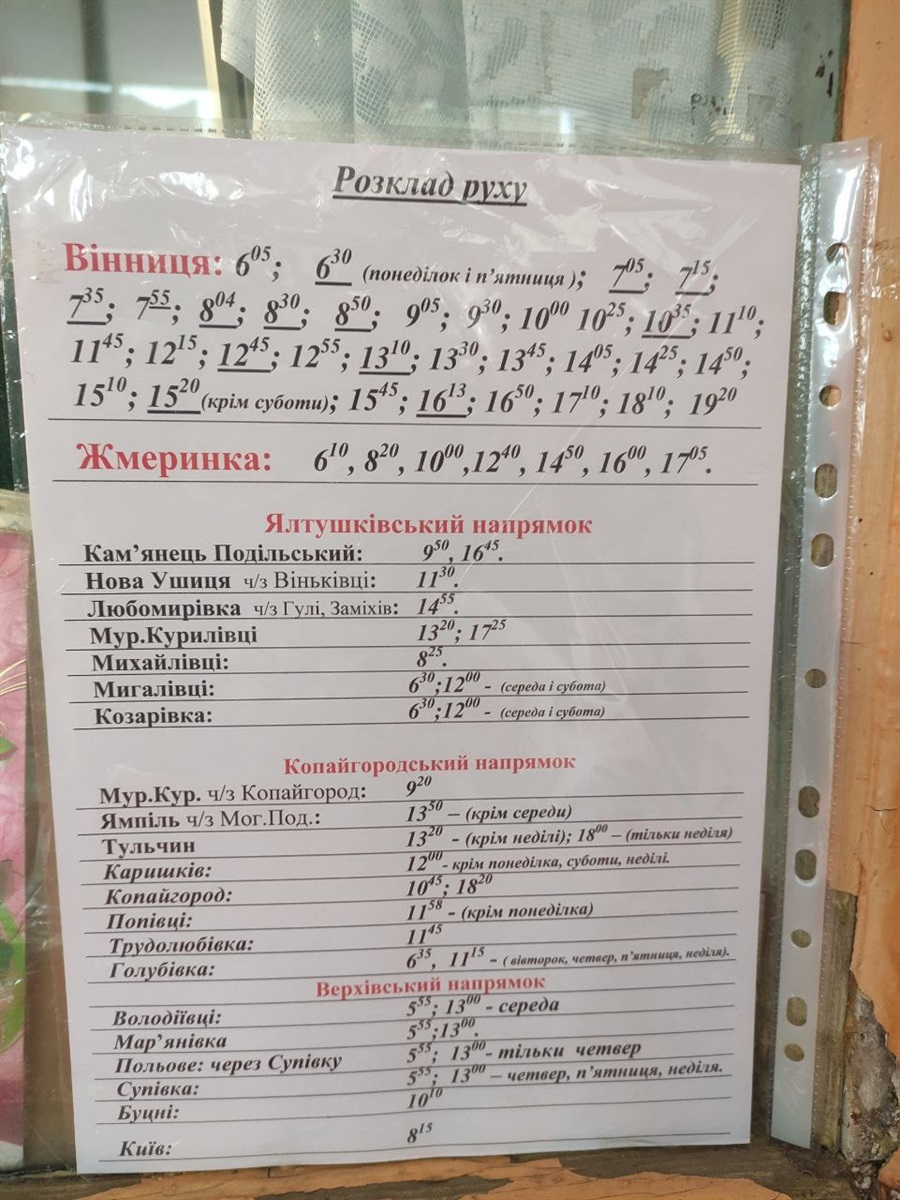 Розклад руху
Вінниця: 6⁰⁵; 6³⁰ (понеділок і п’ятниця ); 7⁰⁵; 7¹⁵;
7³⁵; 7⁵⁵; 8⁰⁴; 8³⁰; 8⁵⁰; 9⁰⁵; 9³⁰; 10⁰⁰ 10²⁵; 10³⁵; 11¹⁰;
11⁴⁵; 12¹⁵; 12⁴⁵; 12⁵⁵; 13¹⁰; 13³⁰; 13⁴⁵; 14⁰⁵; 14²⁵; 14⁵⁰;
15¹⁰; 15²⁰(крім суботи); 15⁴⁵; 16¹³; 16⁵⁰; 17¹⁰; 18¹⁰; 19²⁰
Жмеринка: 6¹⁰, 8²⁰, 10⁰⁰,12⁴⁰, 14⁵⁰, 16⁰⁰, 17⁰⁵.
Ялтушківський напрямок
Кам’янець Подільський: 9⁵⁰, 16⁴⁵.
Нова Ушиця ч/з Віньківці: 11³⁰.
Любомирівка ч/з Гулі, Заміхів: 14⁵⁵.
Мур.Курилівці 13²⁰; 17²⁵
Михайлівці: 8²⁵.
Мигалівці: 6³⁰;12⁰⁰ - (середа і субота)
Козарівка: 6³⁰;12⁰⁰ - (середа і субота)
Копайгородський напрямок
Мур.Кур. ч/з Копайгород: 9²⁰
Ямпіль ч/з Мог.Под.: 13⁵⁰ – (крім середи)
Тульчин 13²⁰ - (крім неділі); 18⁰⁰ – (тільки неділя)
Каришків: 12⁰⁰- крім понеділка, суботи, неділі.
Копайгород: 10⁴⁵; 18²⁰
Попівці: 11⁵⁸ - (крім понеділка)
Трудолюбівка: 11⁴⁵
Голубівка: 6³⁵, 11¹⁵ - ( вівторок, четвер, п’ятниця, неділя).
Верхівський напрямок
Володіївці: 5⁵⁵; 13⁰⁰ - середа
Мар’янівка 5⁵⁵;13⁰⁰.
Польове: через Супівку 5⁵⁵; 13⁰⁰- тільки четвер
Супівка: 5⁵⁵; 13⁰⁰ – четвер, п’ятниця, неділя.
Буцні: 10¹⁰
Київ: 8¹⁵